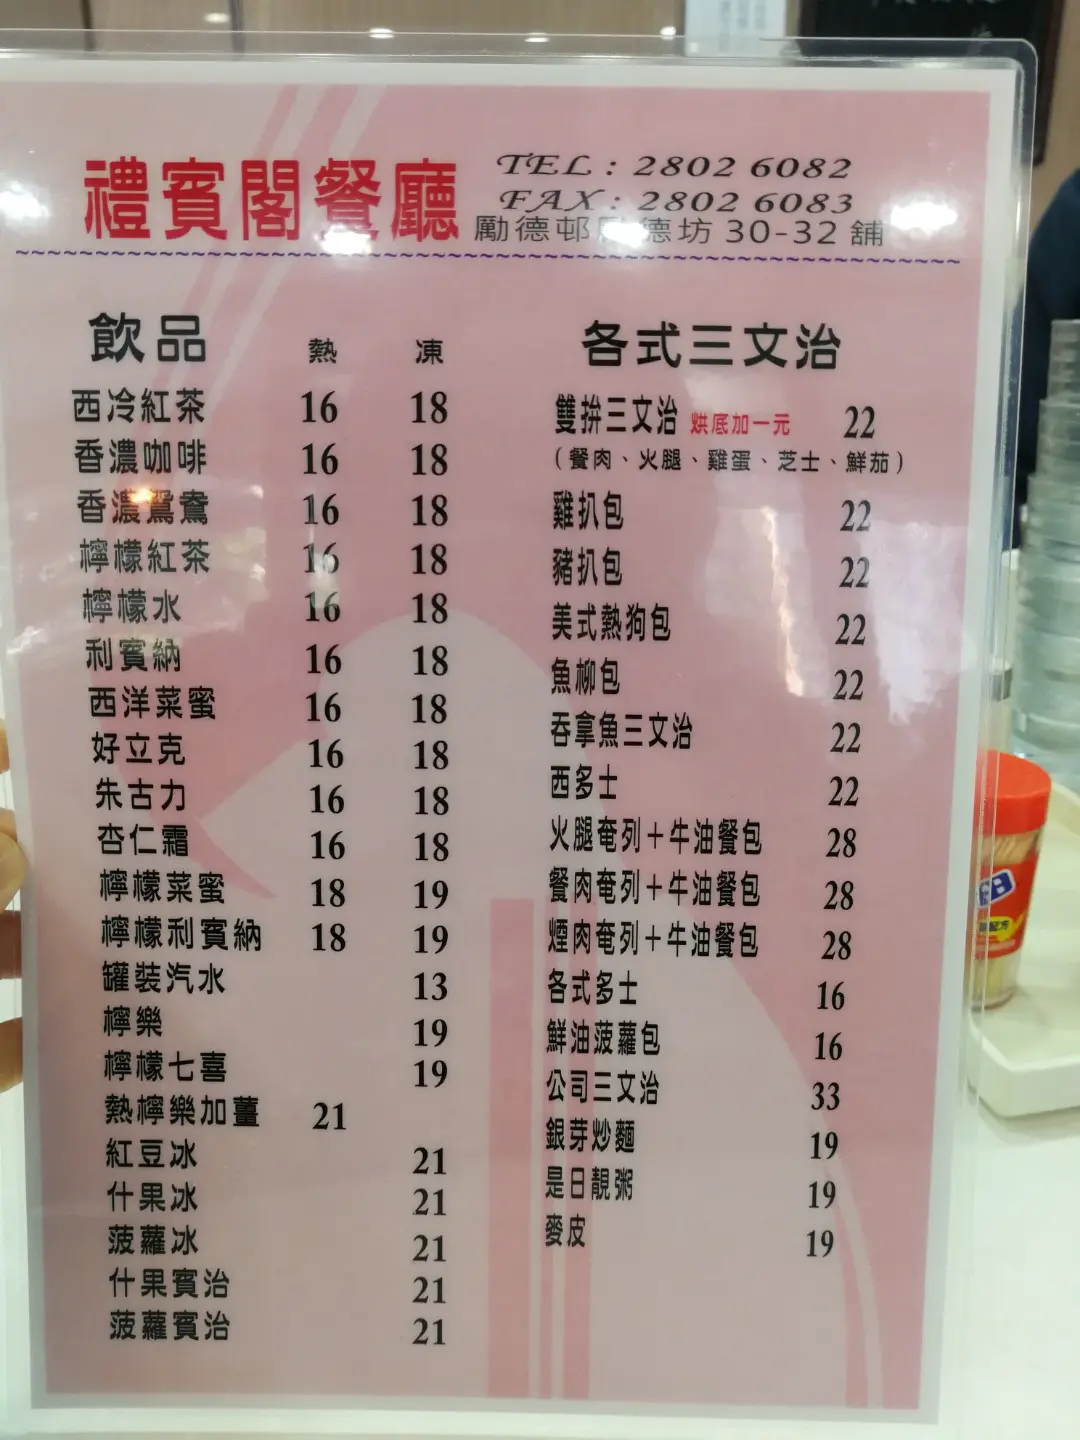 禮賓閣餐廳
TEL : 2802 6082
FAX : 2802 6083
勵德邨勵德坊 30-32 舖
飲品 熱 凍
西冷紅茶 16 18
香濃咖啡 16 18
香濃鴛鴦 16 18
檸檬紅茶 16 18
檸檬水 16 18
利賓納 16 18
西洋菜蜜 16 18
好立克 16 18
朱古力 16 18
杏仁霜 16 18
檸檬菜蜜 18 19
檸檬利賓納 18 19
罐裝汽水 13
檸樂 19
檸檬七喜 19
熱檸樂加薑 21
紅豆冰 21
什果冰 21
菠蘿冰 21
什果賓治 21
菠蘿賓治 21
各式三文治
雙拚三文治 烘底加一元 22
（餐肉、火腿、雞蛋、芝士、鮮茄）
雞扒包 22
豬扒包 22
美式熱狗包 22
魚柳包 22
吞拿魚三文治 22
西多士 22
火腿奄列＋牛油餐包 28
餐肉奄列＋牛油餐包 28
煙肉奄列＋牛油餐包 28
各式多士 16
鮮油菠蘿包 16
公司三文治 33
銀芽炒麵 19
是日靚粥 19
麥皮 19